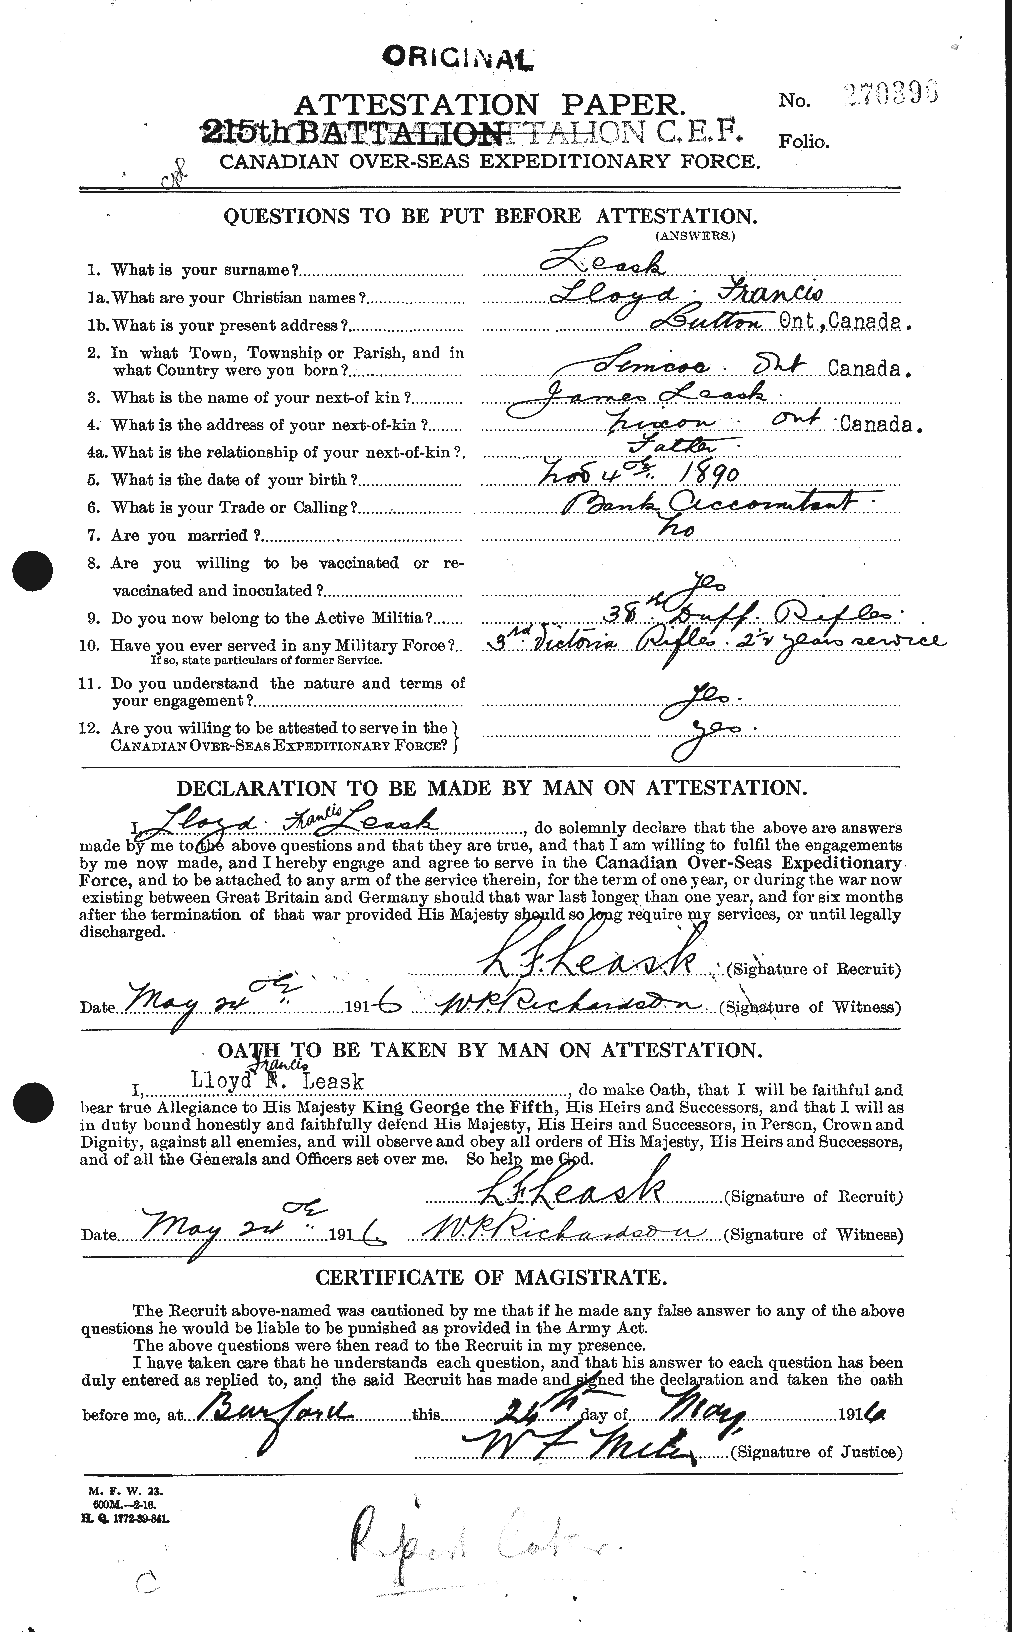 ORIGINAL
ATTESTATION PAPER.
No. 270896
215th BATTALION C.E.F.
Folio.
CANADIAN OVER-SEAS EXPEDITIONARY FORCE.
QUESTIONS TO BE PUT BEFORE ATTESTATION.
(ANSWERS.)
1. What is your surname? Leask
1a. What are your Christian names? Lloyd. Francis
1b. What is your present address? Dutton Ont, Canada.
2. In what Town, Township or Parish, and in
what Country were you born? Simcoe. Ont Canada.
3. What is the name of your next-of kin? James Leask.
4. What is the address of your next-of-kin? Nixon. Ont. Canada.
4a. What is the relationship of your next-of-kin? Father.
5. What is the date of your birth? Nov 4th. 1890
6. What is your Trade or Calling? Bank Accountant.
7. Are you married? No
8. Are you willing to be vaccinated or re-
vaccinated and inoculated? Yes
9. Do you now belong to the Active Militia? 38th Duff. Rifles.
10. Have you ever served in any Military Force? 3rd Victoria Rifles. 2½ years service
If so, state particulars of former Service.
11. Do you understand the nature and terms of
your engagement? Yes.
12. Are you willing to be attested to serve in the
CANADIAN OVER-SEAS EXPEDITIONARY FORCE? } yes.
DECLARATION TO BE MADE BY MAN ON ATTESTATION.
I, Lloyd. Francis Leask, do solemnly declare that the above are answers
made by me to the above questions and that they are true, and that I am willing to fulfil the engagements
by me now made, and I hereby engage and agree to serve in the Canadian Over-Seas Expeditionary
Force, and to be attached to any arm of the service therein, for the term of one year, or during the war now
existing between Great Britain and Germany should that war last longer than one year, and for six months
after the termination of that war provided His Majesty should so long require my services, or until legally
discharged.
L F. Leask (Signature of Recruit)
Date May 24th 1916 W.P. Richardson (Signature of Witness)
OATH TO BE TAKEN BY MAN ON ATTESTATION.
Francis
I, Lloyd F. Leask, do make Oath, that I will be faithful and
bear true Allegiance to His Majesty King George the Fifth, His Heirs and Successors, and that I will as
in duty bound honestly and faithfully defend His Majesty, His Heirs and Successors, in Person, Crown and
Dignity, against all enemies, and will observe and obey all orders of His Majesty, His Heirs and Successors,
and of all the Generals and Officers set over me. So help me God.
L F Leask (Signature of Recruit)
Date May 24th 1916. W.P. Richardson (Signature of Witness)
CERTIFICATE OF MAGISTRATE.
The Recruit above-named was cautioned by me that if he made any false answer to any of the above
questions he would be liable to be punished as provided in the Army Act.
The above questions were then read to the Recruit in my presence.
I have taken care that he understands each question, and that his answer to each question has been
duly entered as replied to, and the said Recruit has made and signed the declaration and taken the oath
before me, at Burford this 24th day of May, 1916
W F (Signature of Justice)
M. F. W. 23.
600M.-2-16.
H. Q. 1772-39-841.
C